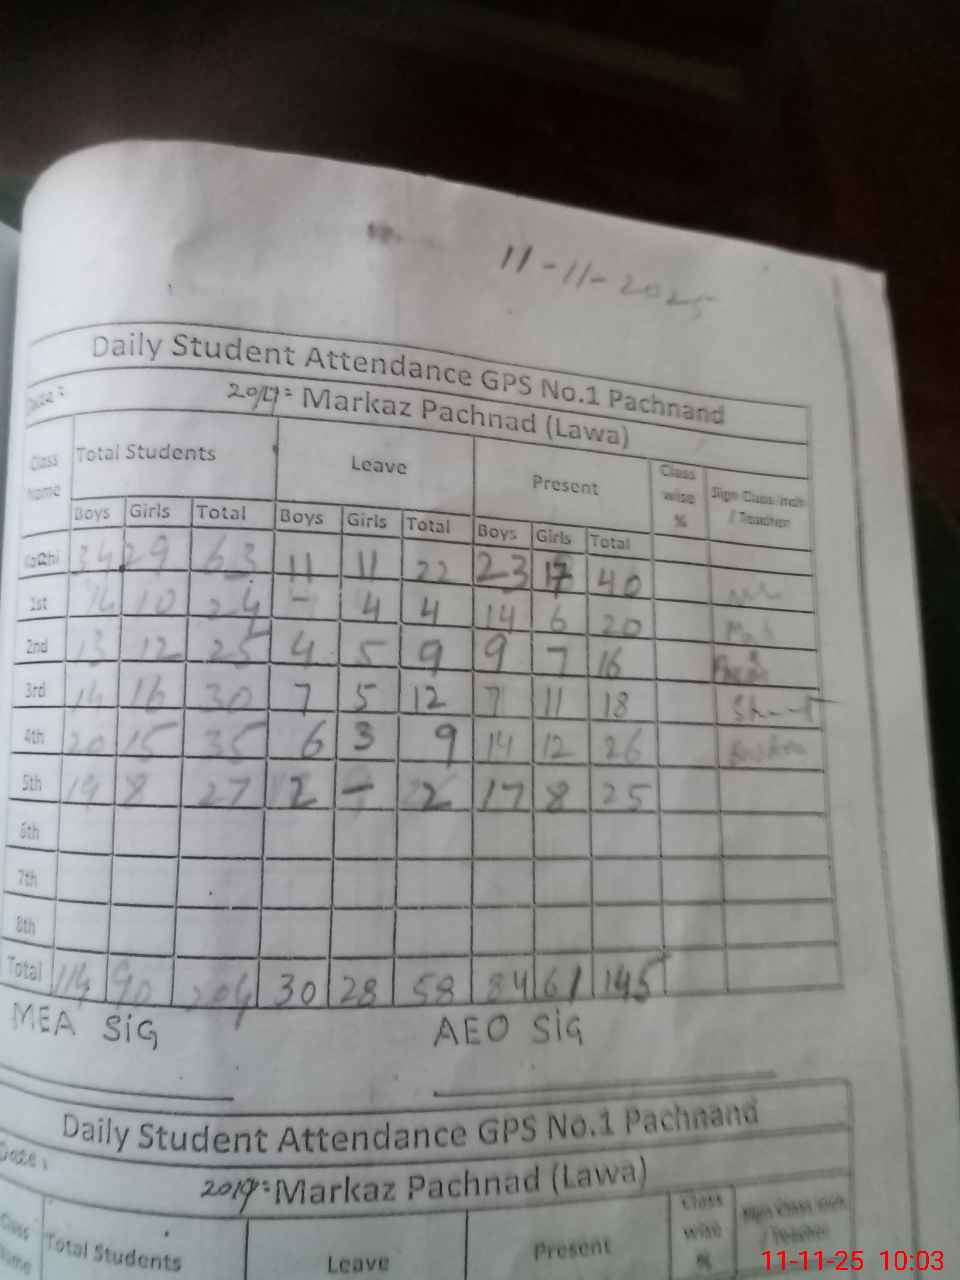 11-11-2025
Daily Student Attendance GPS No.1 Pachnand
Date:
2019: Markaz Pachnad (Lawa)
Class Name Total Students Leave Present Class wise % Sign Class Inch / Teacher
Boys Girls Total Boys Girls Total Boys Girls Total
34 29 63 11 11 22 23 17 40
1st 14 10 24 - 4 4 14 6 20
2nd 13 12 25 4 5 9 9 7 16
3rd 14 16 30 7 5 12 7 11 18
4th 20 15 35 6 3 9 14 12 26
5th 19 8 27 2 - 2 17 8 25
6th
7th
8th
Total 114 90 204 30 28 58 84 61 145
MEA SiG AEO SiG
Daily Student Attendance GPS No.1 Pachnand
Date:
2019: Markaz Pachnad (Lawa)
Class Name Total Students Leave Present Class wise % Sign Class Inch / Teacher
11-11-25 10:03